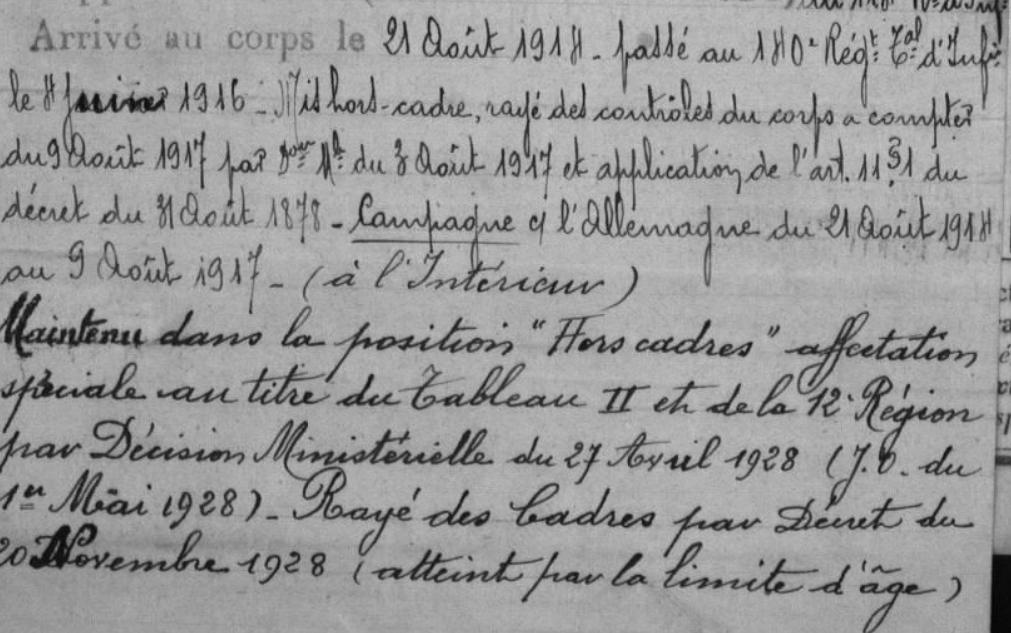 Arrivé au corps le 21 Août 1914 - passé au 140e Régt Tal d'Infie
le 4 1916 - Mis hors-cadre, rayé des contrôles du corps a compter
du 9 Août 1917 par du 3 Août 1917 et application de l'art. 11 § 1 du
décret du 31 Août 1878 - Campagne c/ l'Allemagne du 21 Août 1914
au 9 Août 1917 - (à l'Intérieur)
Maintenu dans la position "Hors cadres" affectation
spéciale au titre du Tableau II et de la 12e Région
par Décision Ministérielle du 27 Avril 1928 (J.O. du
1er Mai 1928) - Rayé des Cadres par Décret du
20 Novembre 1928 (atteint par la limite d'âge)